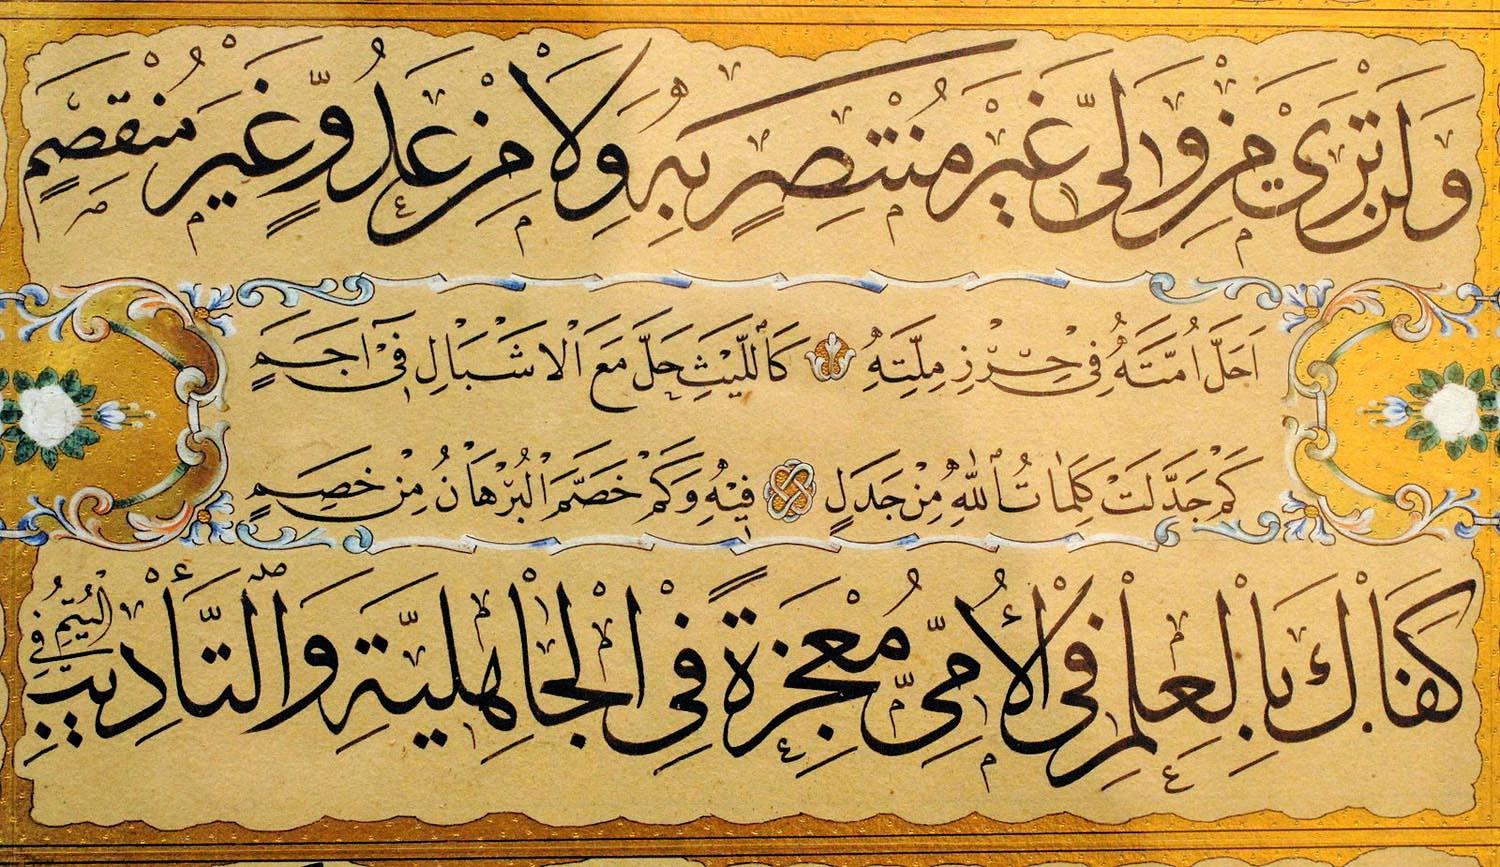 وَلَنْ تَرٰى مِنْ وَلِيٍّ غَيْرَ مُنْتَصِرٍ بِهِ وَلَا مِنْ عَدُوٍّ غَيْرَ مُنْقَصِمٍ
اَحَلَّ اُمَّتَهُ فِى حِرْزِ مِلَّتِهِ كَاللَّيْثِ حَلَّ مَعَ الْاَشْبَالِ فِى اَجَمٍ
كَمْ جَدَّلَتْ كَلِمَاتُ اللهِ مِنْ جَدَلٍ فِيهِ وَكَمْ خَصَّمَ الْبُرْهَانُ مِنْ خَصِمٍ
كَفَاكَ بِالْعِلْمِ فِى الْأُمِّىِّ مُعْجِزَةً فِى الْجَاهِلِيَّةِ وَالتَّأْدِيبِ فِى الْيُتُمِ